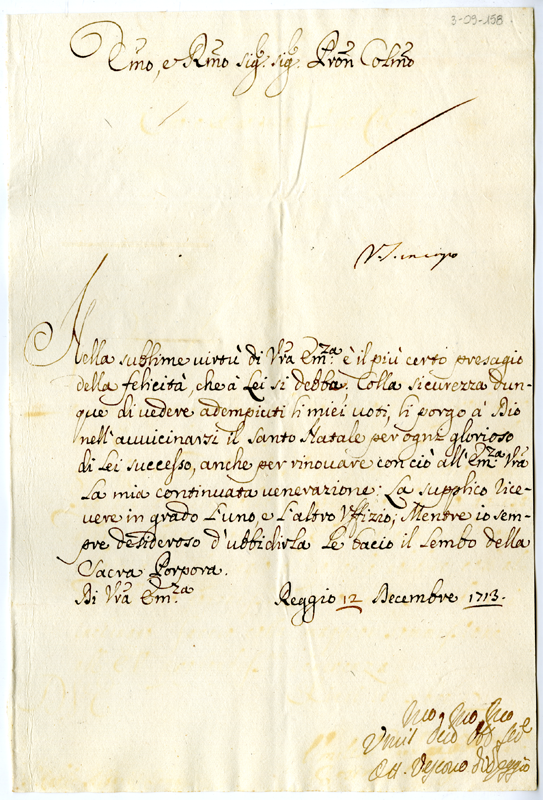 3-09-158
Emo, e Rmo Sig.r Sig.r Pron Colmo
Nella sublime virtù di Vrã Em.za è il più certo presagio
della felicità, che à Lei si debba. Colla sicurezza dun-
que di vedere adempiuti li miei voti, li porgo à Dio
nell'avvicinarsi il Santo Natale per ogni glorioso
di Lei successo, anche per rinovare con ciò all'Em.za Vrã
La mia continuata venerazione: La supplico rice-
vere in grado l'uno, e l'altro Uffizio; Mentre io sem-
pre desideroso d'ubbidirla Le bacio il Lembo della
Sacra Porpora.
Di Vrã Em.za Reggio 12 Decembre 1713.
Umil
Ott. Vescovo di Reggio